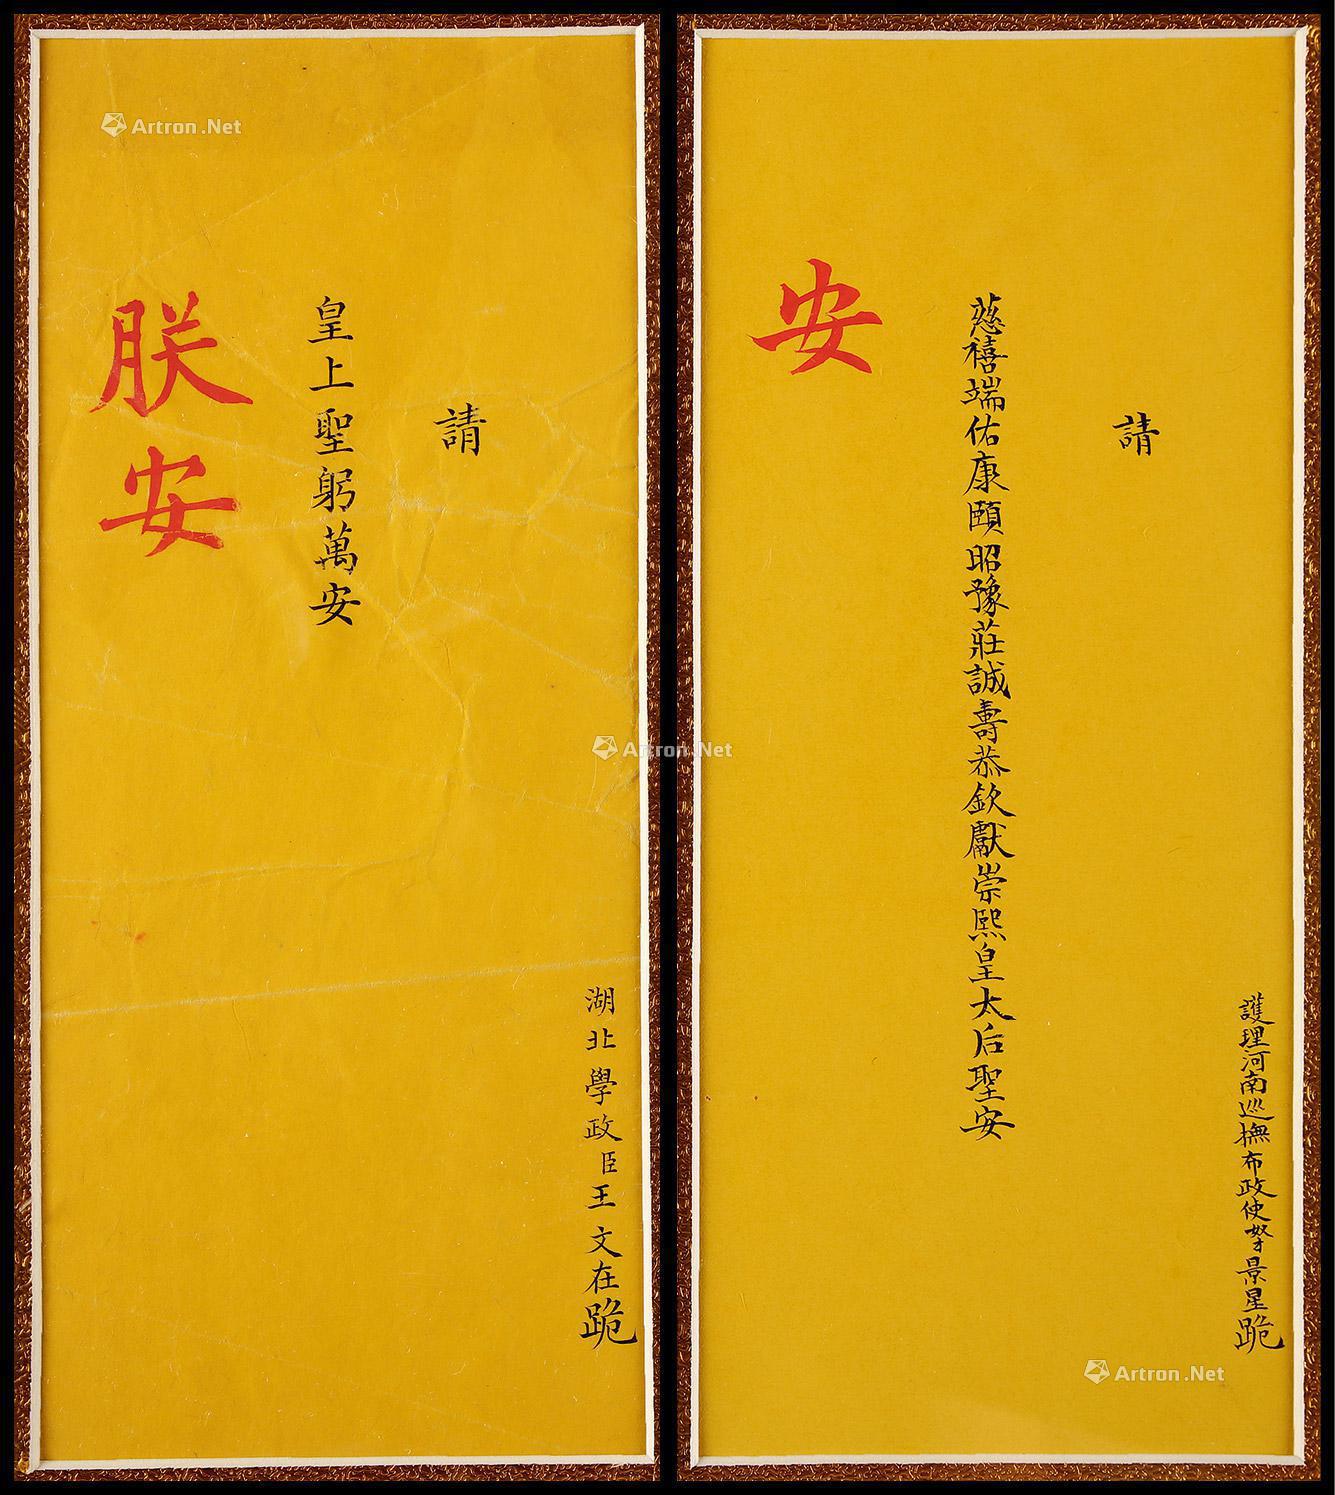 護理河南巡撫布政使奴才景星跪
請
慈禧端佑康頤昭豫莊誠壽恭欽獻崇熙皇太后聖安
安
湖北學政臣王文在跪
請
皇上聖躬萬安
朕安
Artron.Net
Artron.Net
Artron.Net